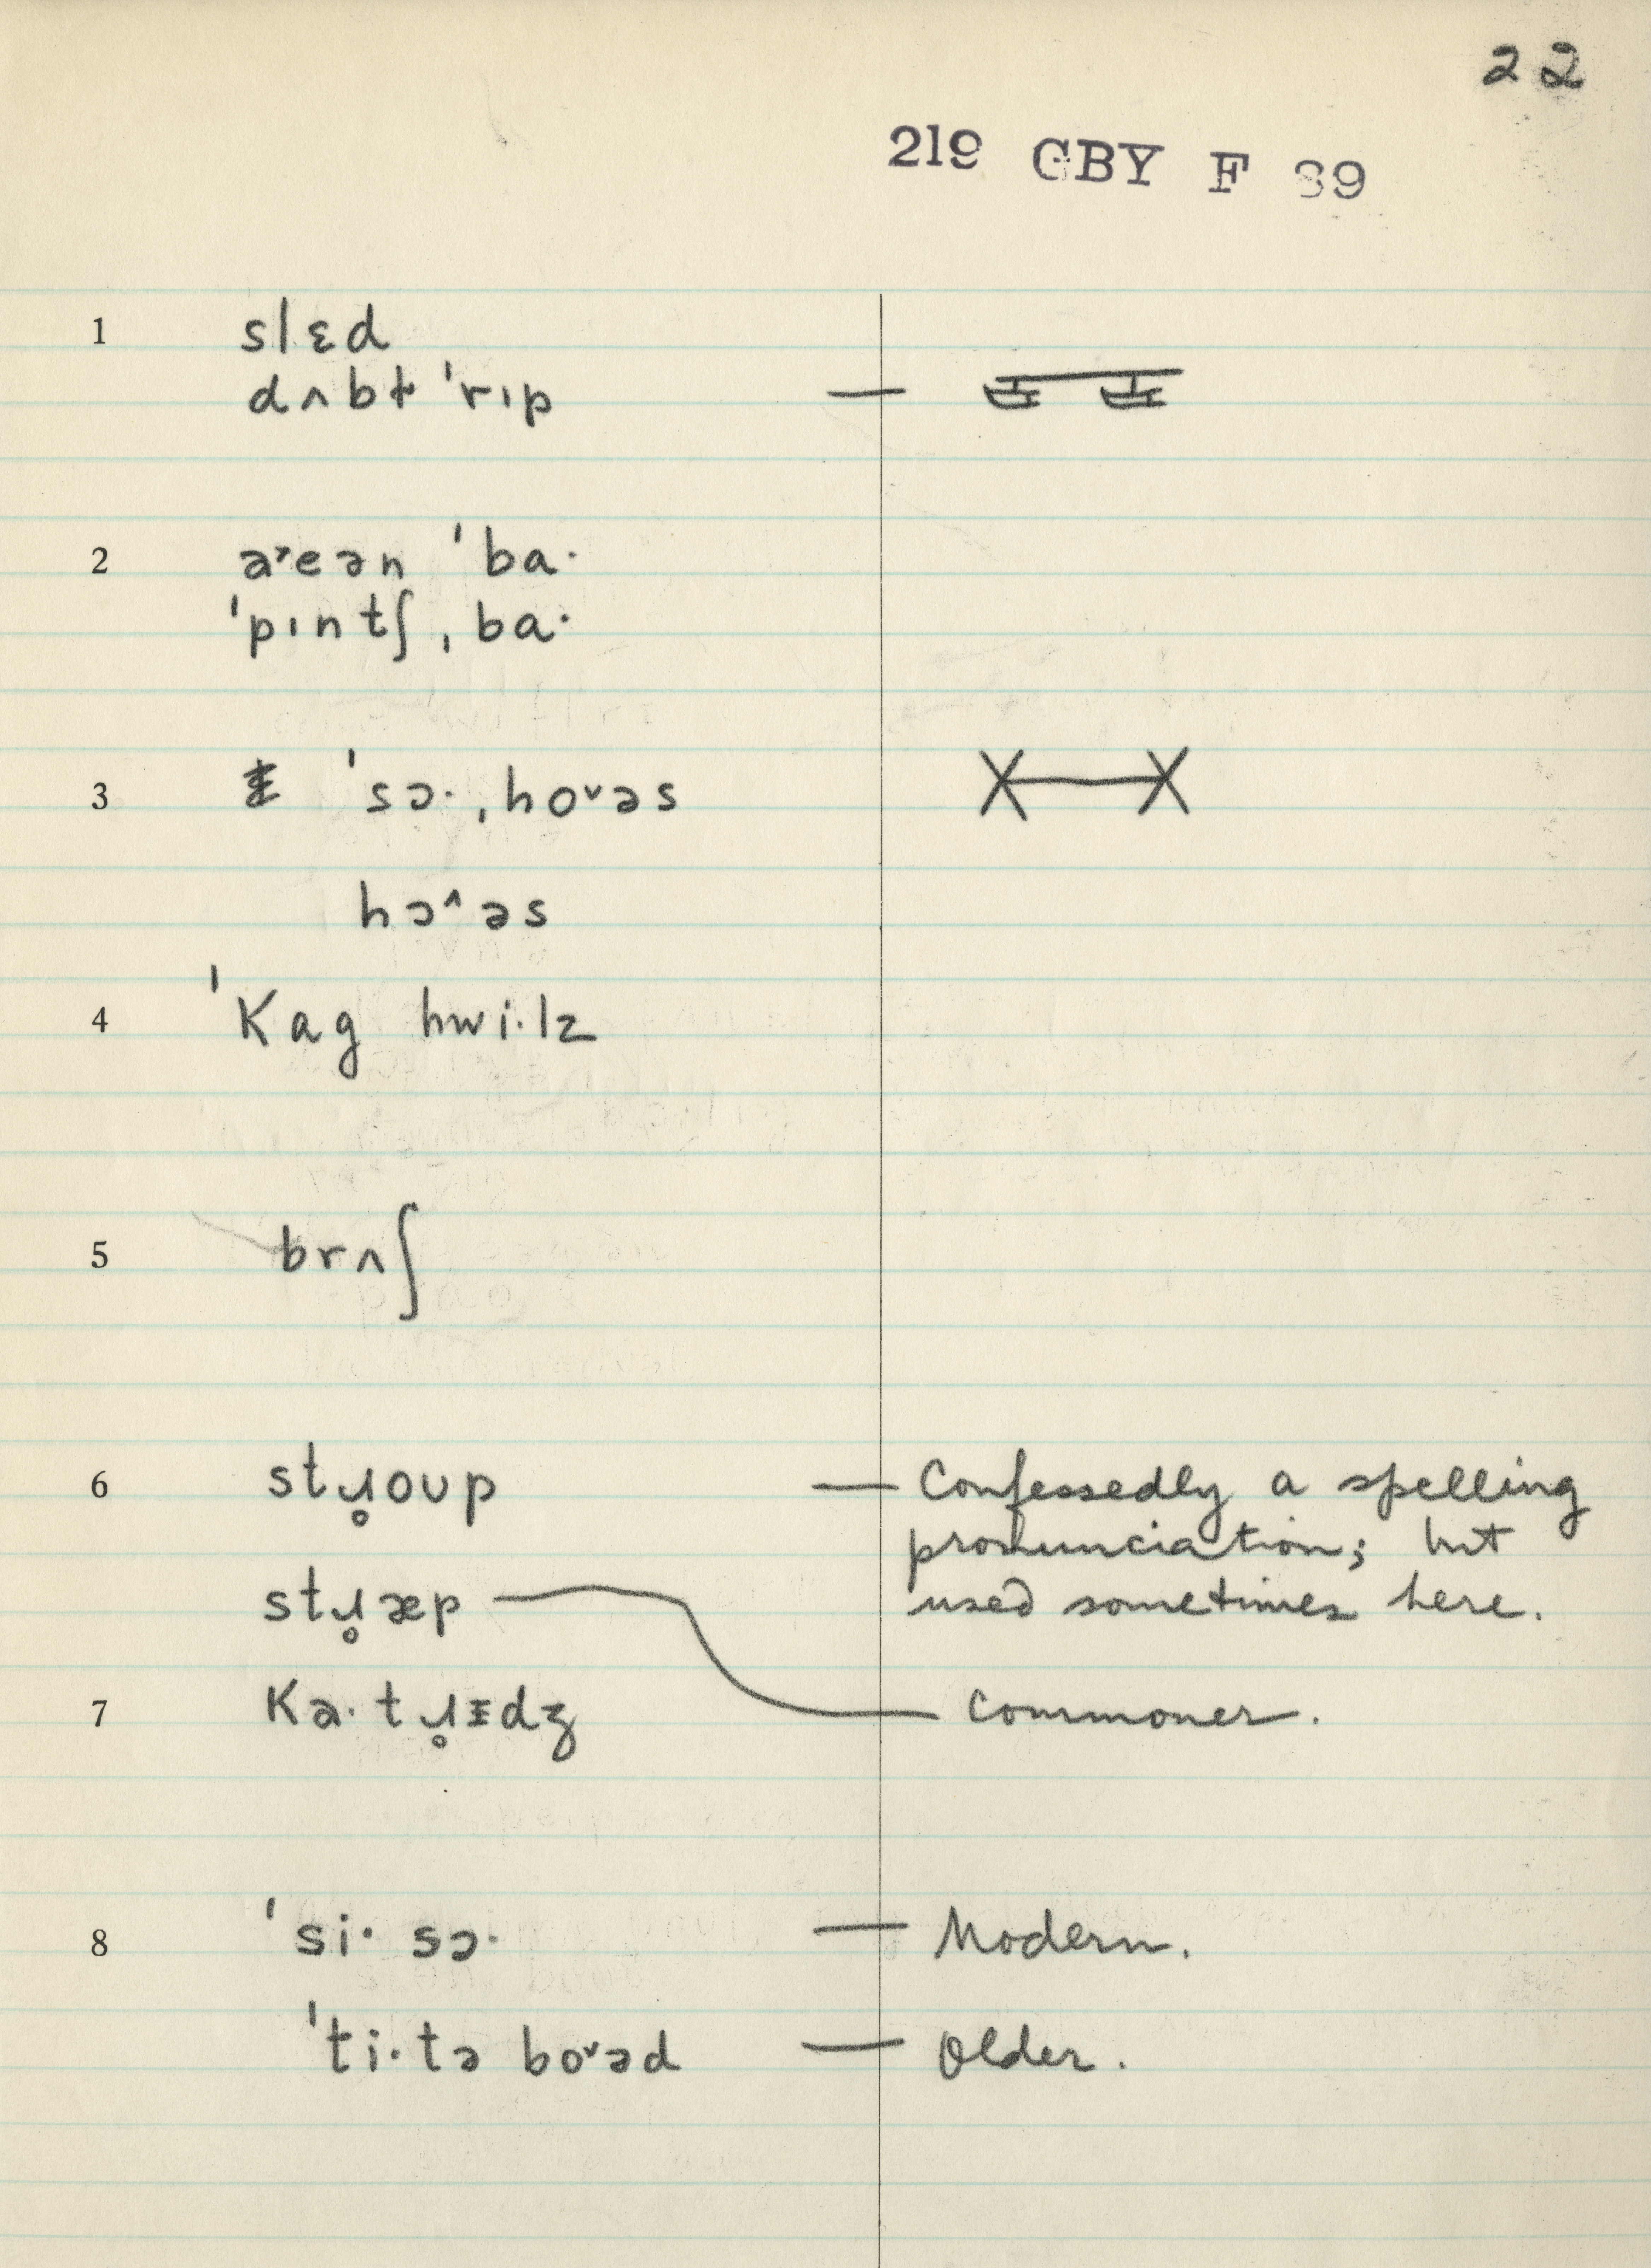 22
219 GBY F 39
1 slɛd
dʌbt̵ ˈrɪp —
2 a˒eən ˈba·
ˈpɪntʃ ˌba·
3 ˈsɔ· ˌhoᵛəs
hɔ^əs
4 ˈKag hwi·lz
5 brʌʃ
6 stɹ̥oʊp — Confessedly a spelling
pronunciation; but
stɹ̥æp used sometimes here.
7 Ka·tɹ̥ᵻdʒ Commoner.
8 ˈsi· sɔ· — Modern.
ˈti·tə boᵛəd — Older.